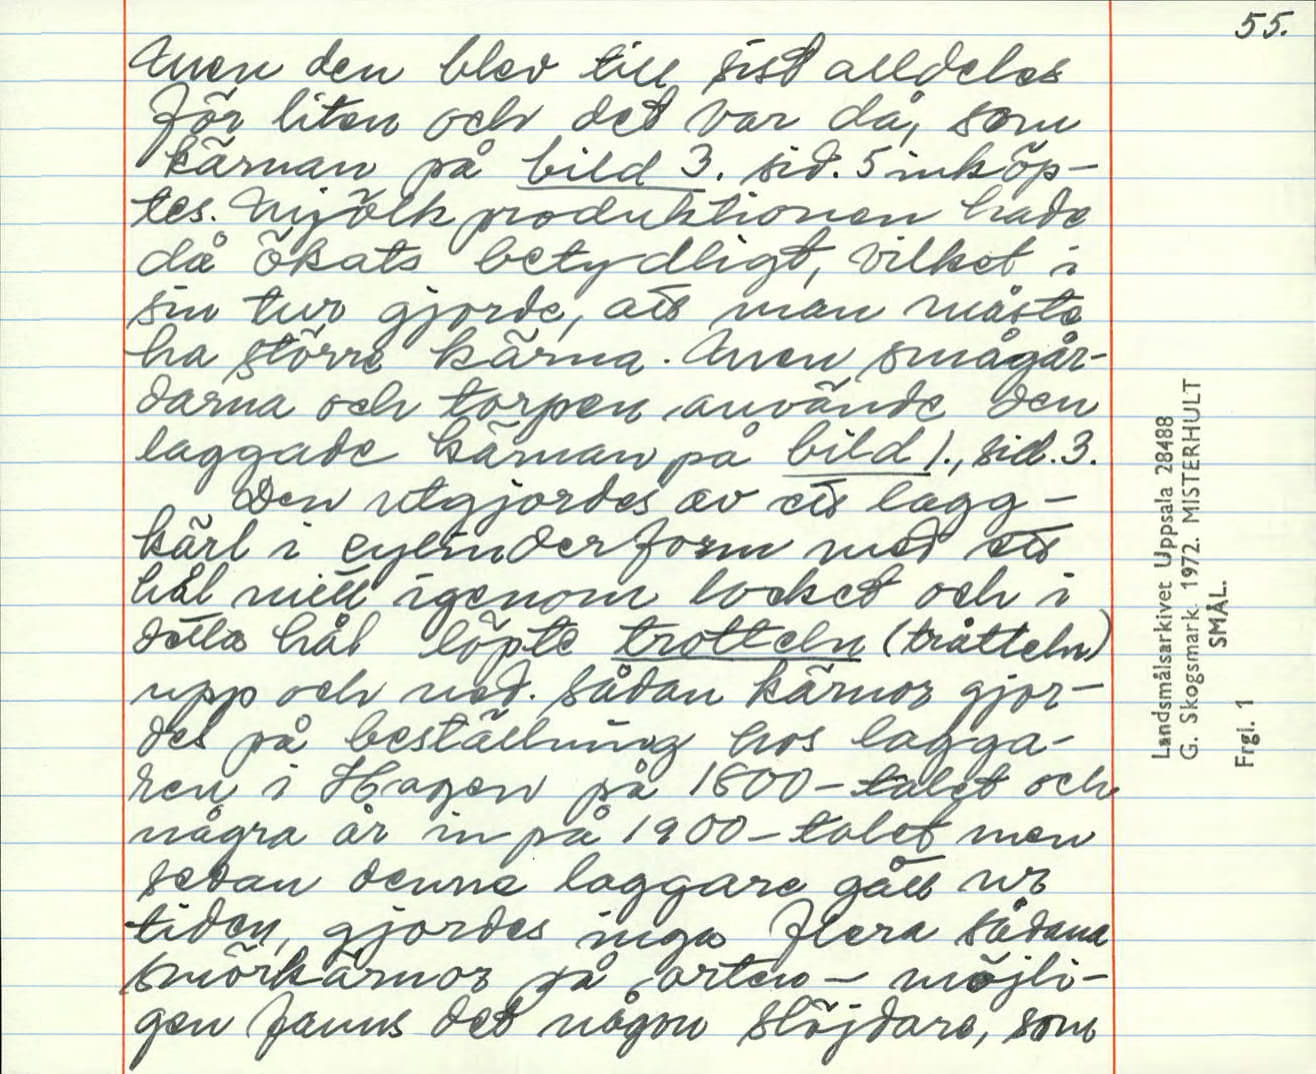 55.
Men den blev till sist alldeles
för liten och det var då, som
kärnan på bild 3. sid. 5 inköp-
tes. Mjölkproduktionen hade
då ökats betydligt, vilket i
sin tur gjorde, att man måste
ha större kärna. Men smågår-
darna och torpen använde den
laggade kärnan på bild 1., sid. 3.
Den utgjordes av ett lagg-
kärl i cylinderform med ett
hål mitt igenom locket och i
detta hål löpte trotteln (tråtteln)
upp och ned. Sådan kärnor gjor-
des på beställning hos lagga-
ren i Hagen på 1800-talet och
några år in på 1900-talet men
sedan denne laggare gått ur
tiden, gjordes inga flera sådana
smörkärnor på orten - möjli-
gen fanns det någon slöjdare, som
Landsmålsarkivet Uppsala 28488
G. Skogsmark 1972. MISTERHULT
SMÅL.
Frgl. 1